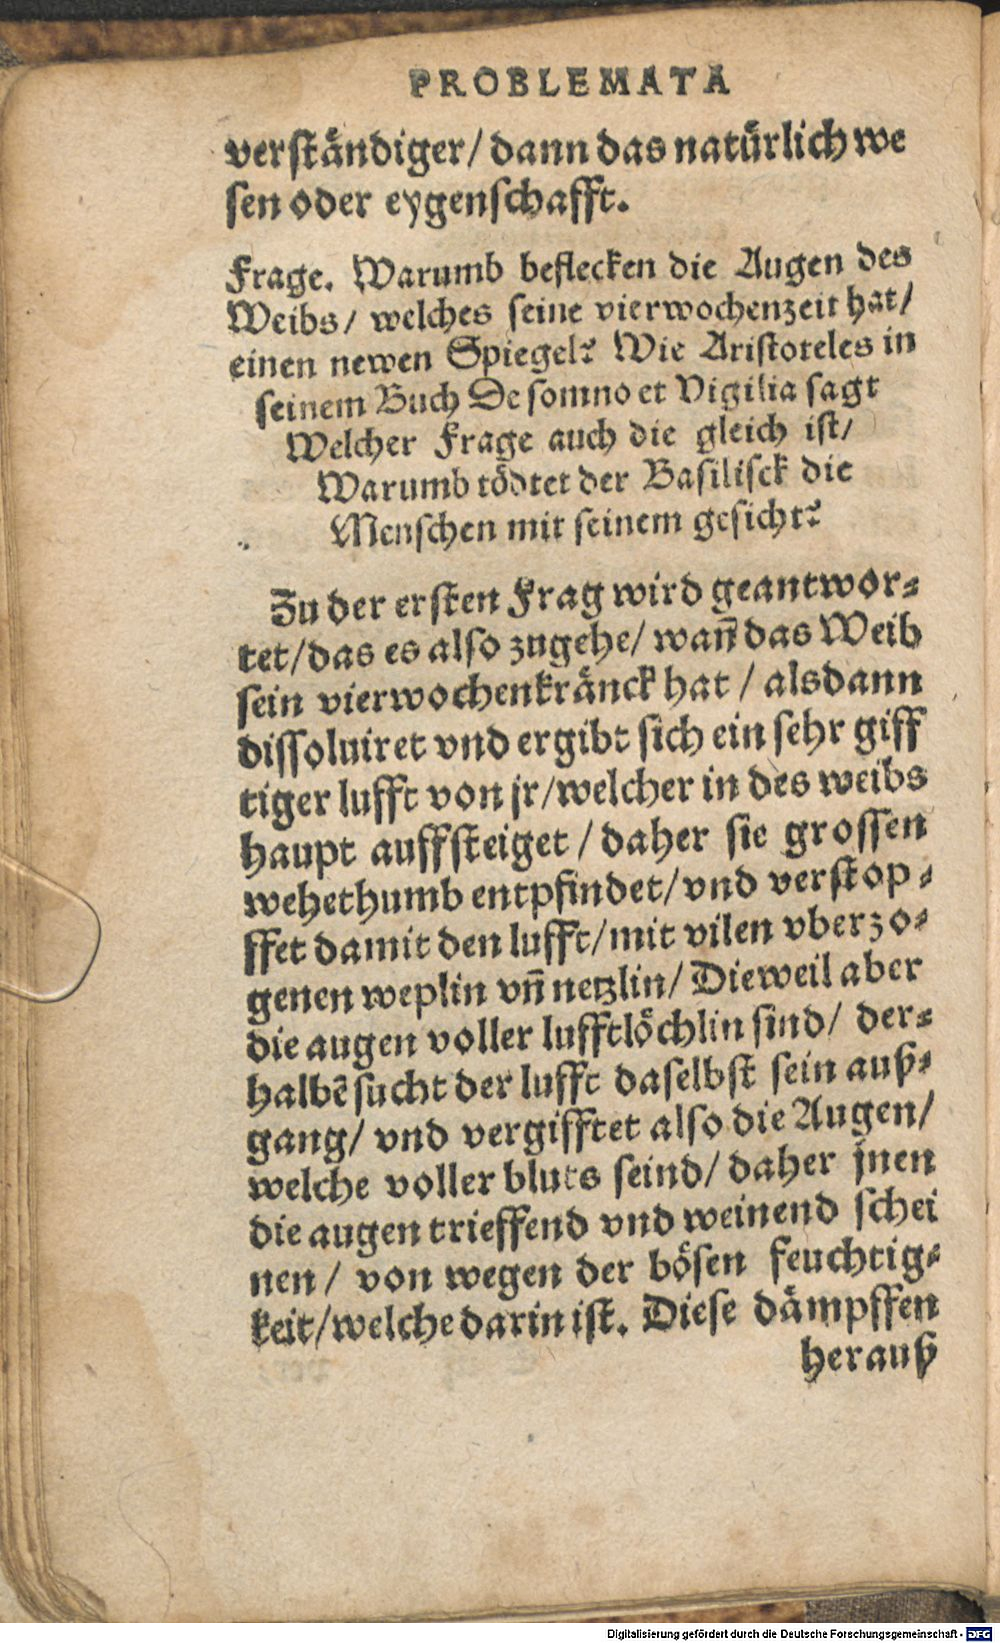 PROBLEMATA
verständiger/ dann das natürlich we
sen oder eygenschafft.
Frage. Warumb beflecken die Augen des
Weibs/ welches seine vierwochenzeit hat/
einen newen Spiegel? Wie Aristoteles in
seinem Buch De somno et Vigilia sagt
Welcher Frage auch die gleich ist/
Warumb tödtet der Basilisck die
Menschen mit seinem gesicht?
Zu der ersten Frag wird geantwor⸗
tet/ das es also zugehe/ wañ das Weib
sein vierwochenkränck hat / alsdann
dissoluiret vnd ergibt sich ein sehr giff
tiger lufft von jr/ welcher in des weibs
haupt auffsteiget / daher sie grossen
wehethumb entpfindet/ vnd verstop⸗
ffet damit den lufft/ mit vilen vberzo⸗
genen weplin vñ netzlin/ Dieweil aber
die augen voller lufftlöchlin sind/ der⸗
halbẽ sucht der lufft daselbst sein auß⸗
gang/ vnd vergifftet also die Augen/
welche voller bluts seind/ daher jnen
die augen trieffend vnd weinend schei
nen / von wegen der bösen feuchtig⸗
keit/ welche darin ist. Diese dämpffen
herauß
Digitalisierung gefördert durch die Deutsche Forschungsgemeinschaft - DFG